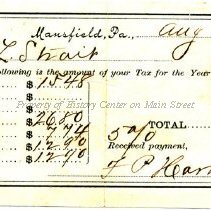 Mansfield, Pa., Aug
L Strait
ollowing is the amount of your Tax for the Year
$ 15.48
$
$
$ 26.80 TOTAL
$ 7.74 5%
$ 12.90 Received payment,
$ 12.90 F P
Property of History Center on Main Street